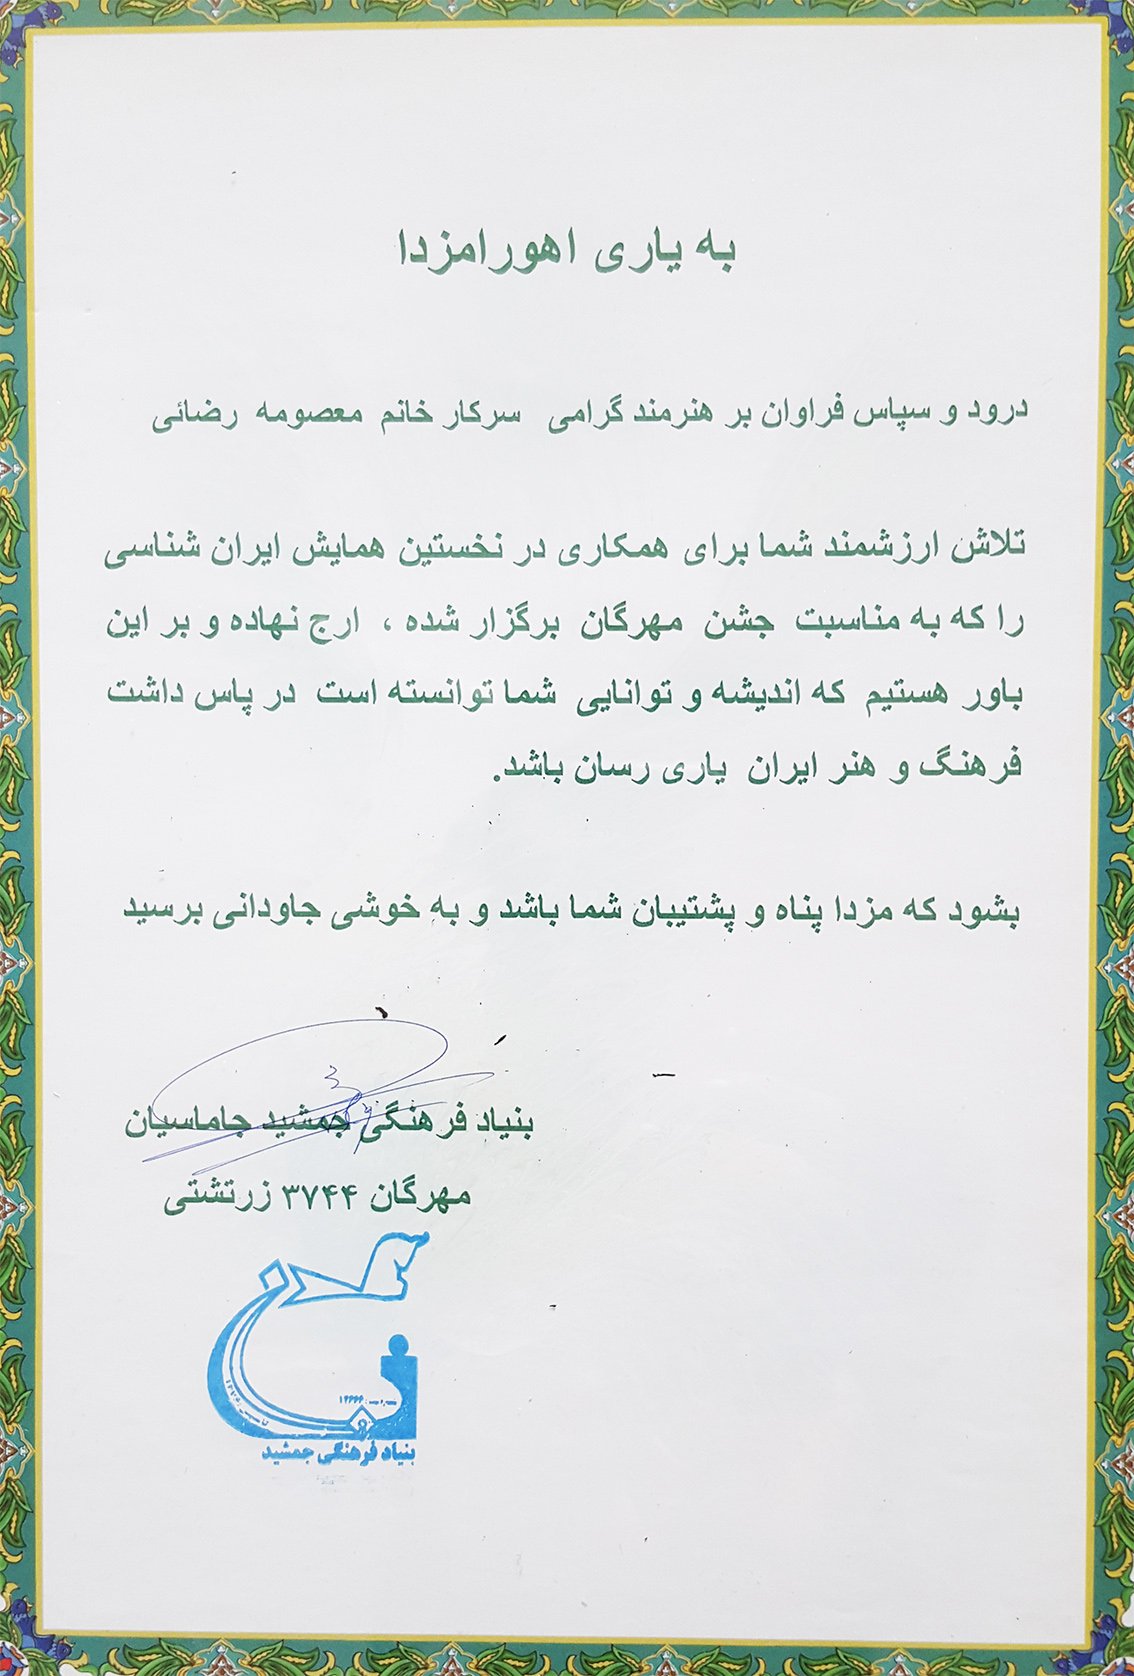 به یاری اهورامزدا
درود و سپاس فراوان بر هنرمند گرامی سرکار خانم معصومه رضائی
تلاش ارزشمند شما برای همکاری در نخستین همایش ایران شناسی
را که به مناسبت جشن مهرگان برگزار شده ، ارج نهاده و بر این
باور هستیم که اندیشه و توانایی شما توانسته است در پاس داشت
فرهنگ و هنر ایران یاری رسان باشد.
بشود که مزدا پناه و پشتیبان شما باشد و به خوشی جاودانی برسید
بنیاد فرهنگی جمشید جاماسیان
مهرگان ۳۷۴۴ زرتشتی
بنیاد فرهنگی جمشید